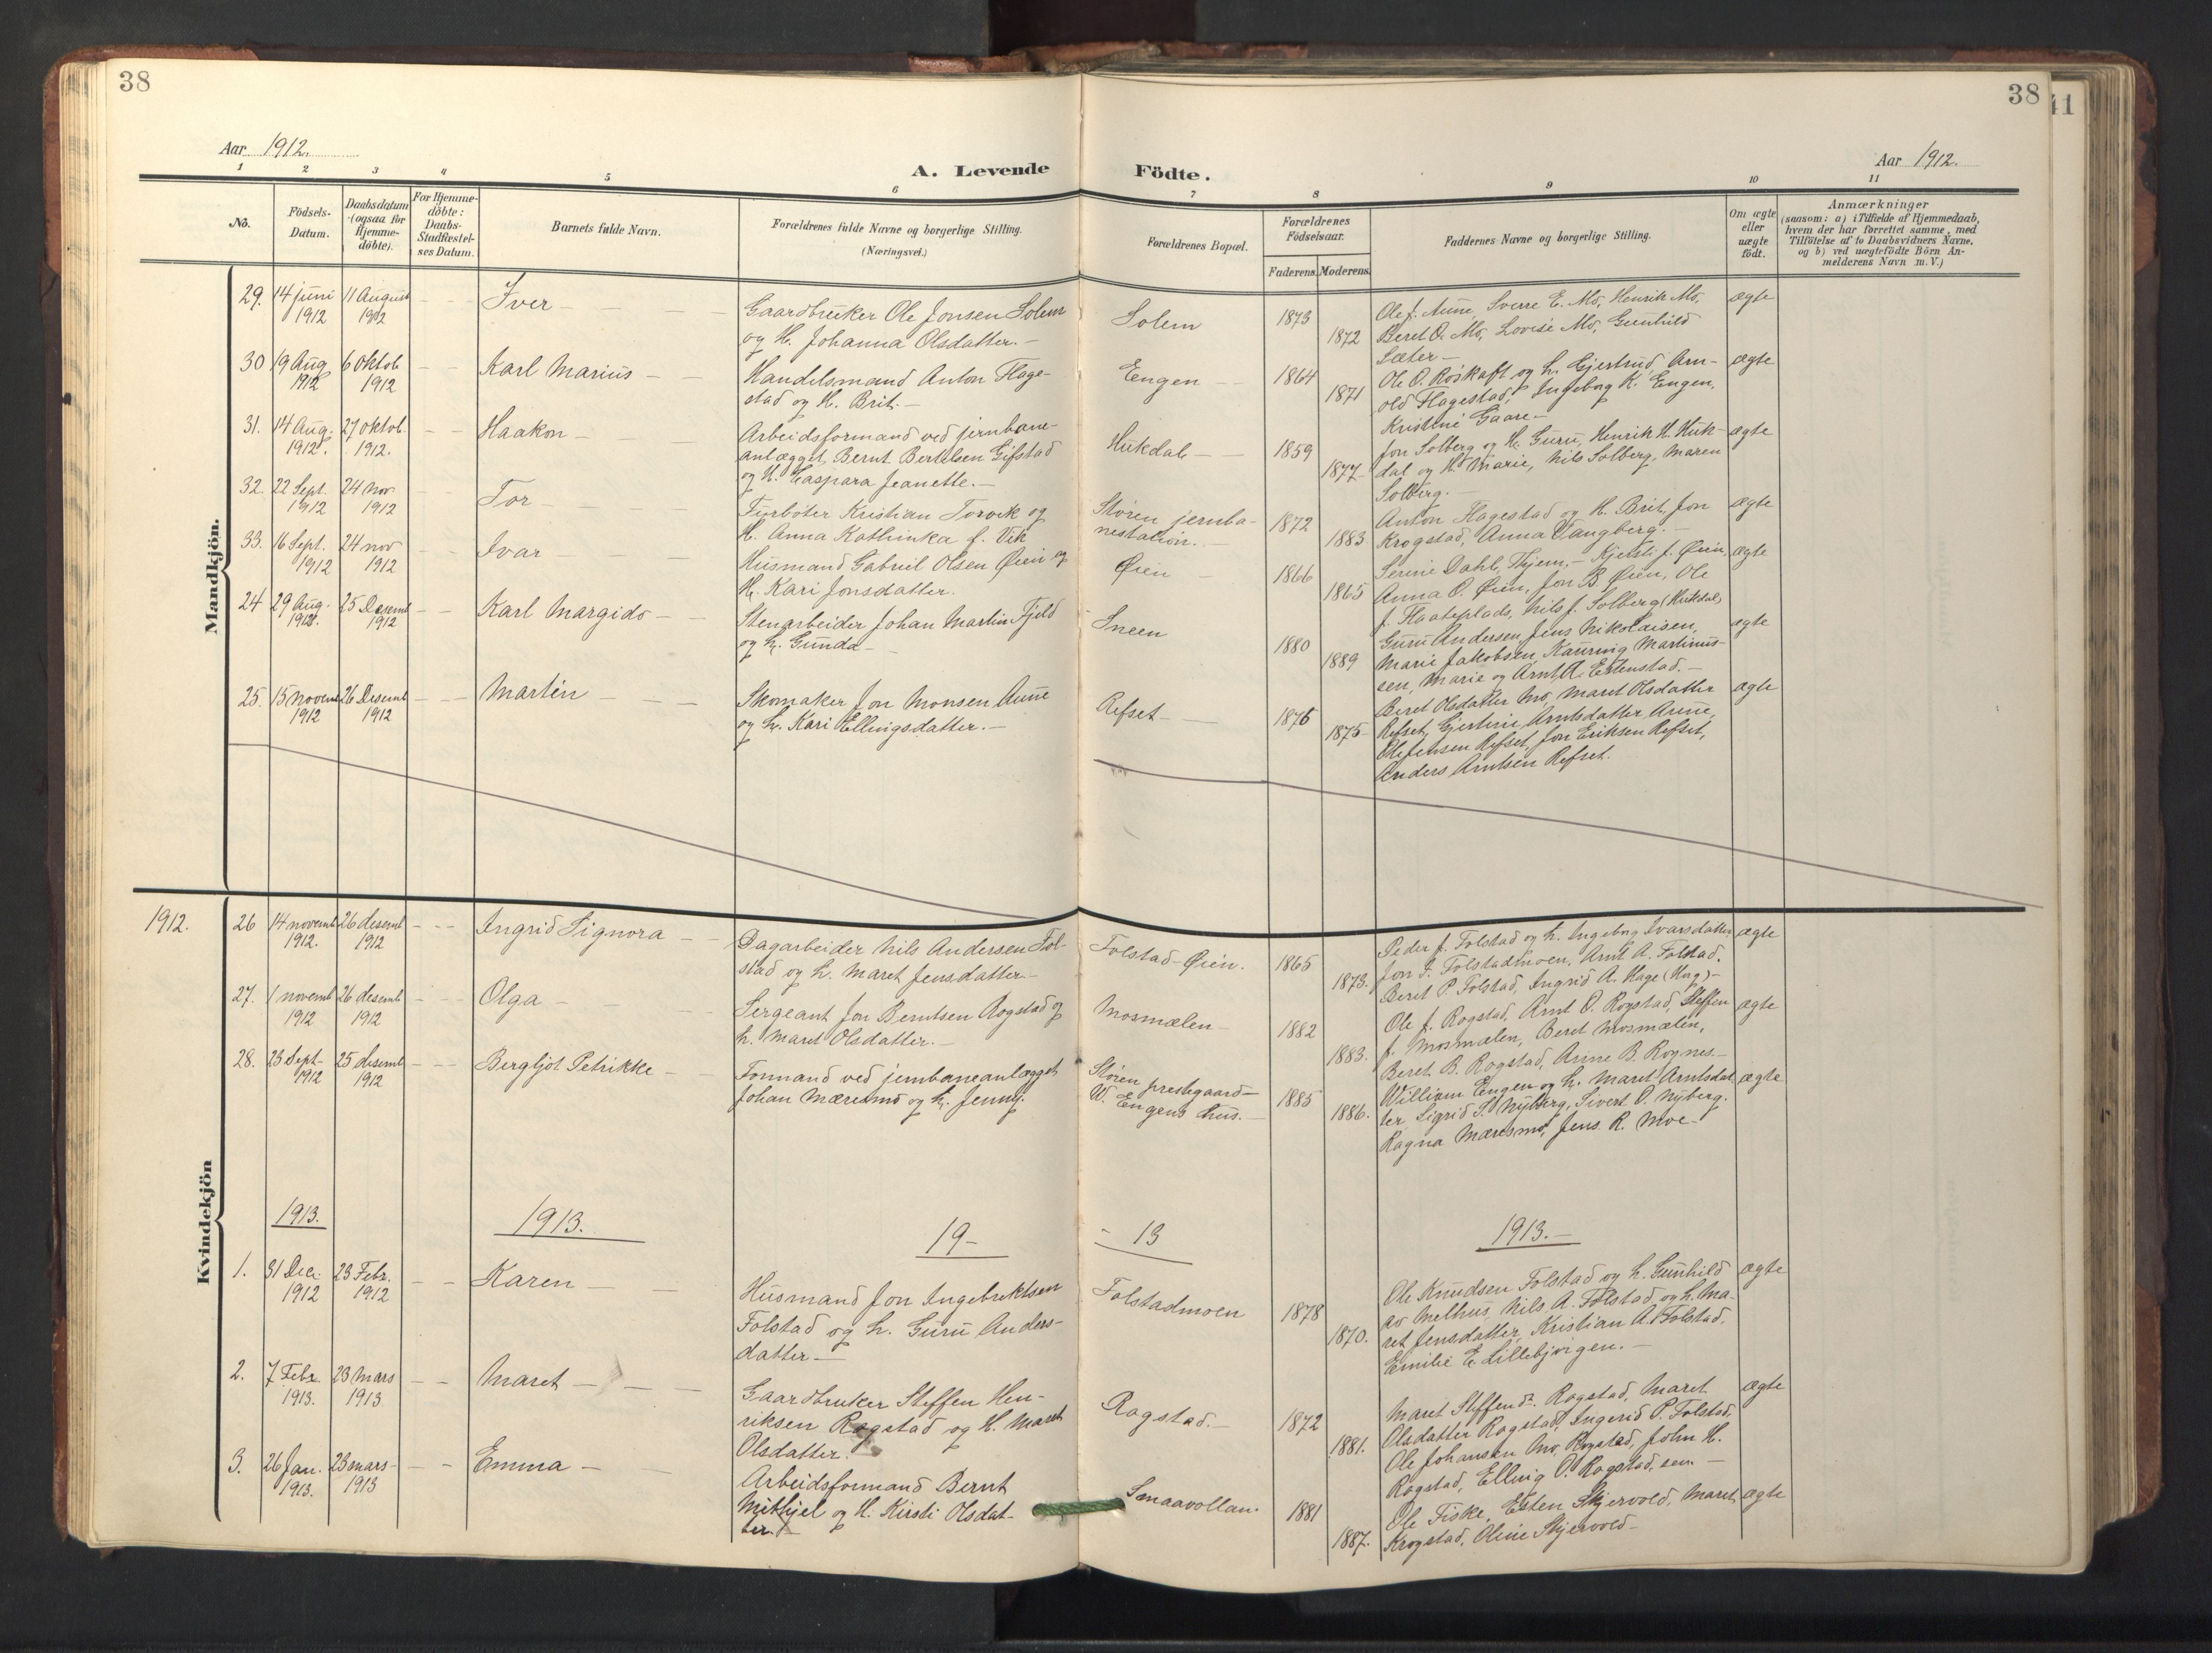 38
38
41
Aar 1912.
A. Levende Födte.
Aar 1912.
1 2 3 4 5 6 7 8 9 10 11
No.
Födsels-
Datum.
Daabsdatum
(ogsaa for
Hjemme-
döbte).
For Hjemme-
döbte:
Daabs-
Stadfæstel-
ses Datum.
Barnets fulde Navn.
Forældrenes fulde Navne og borgerlige Stilling.
(Næringsvei.)
Forældrenes Bopæl.
Forældrenes
Födselsaar.
Faderens. Moderens.
Faddernes Navne og borgerlige Stilling.
Om ægte
eller
uægte
födt.
Anmærkninger
(saasom: a) i Tilfælde af Hjemmedaab,
hvem der har forrettet samme, med
Tilföielse af to Daabsvidners Navne,
og b) ved uægtefödte Börn An-
melderens Navn m. V.)
Mandkjön.
29. 14 juni 1912 11 August 1912 Iver
Gaardbruker Ole Jonsen Solem
og H. Johanna Olsdatter.
Solem 1873 1872
Ole J. Aune, Sverre E. Mo, Henrik Mo,
Beret O. Mo, Lovise Mo, Gunhild
Sæter
ægte
30 19 Aug 1912 6 Oktob 1912 Karl Marius
Handelsmand Anton Flage-
stad og H. Brit.
Engen 1864 1871
Ole O. Röskaft og h. Gjertrud, Arn-
old Flagestad, Ingeborg K. Engen,
Kristine Gaare
ægte
31. 14 Aug. 1912. 27 oktob. 1912. Haakon
Arbeidsformand ved jernbane-
anlægget Bernt Bertelsen Gifstad
og H. Caspara Jeanette.
Hukdal 1859 1877
Jon Solberg og H. Guru, Henrik H. Huk-
dal og H. Marie, Nils Solberg, Maren
Solberg.
ægte
32. 22 Sept. 1912 24 Nov 1912 Tor
Fyrböter Kristian Torvik og
H. Anna Kathinka f. Vik
Stören jernba-
nestation. 1872 1883
Anton Flagestad og H. Brit, Jon
Krogstad, Anna Vangberg.
ægte
33. 16 Sept. 1912 24 nov 1912 Ivar
Husmand Gabriel Olsen Øien og
H. Kari Jonsdatter.
Øien 1866 1865
Serine Dahl, Hjem, Kjersti J. Øien,
Anna O. Øien, Jon B. Øien, Ole
J. Flaateplads, Nils J. Solberg (Hukdal)
ægte
24 29 Aug. 1912. 25 Desemb 1912 Karl Margido
Stenarbeider Johan Martin Fjeld
og h. Gunda
Sneen 1880 1889
Guru Andersen, Jens Nikolaisen,
Marie Jakobsen, Martinus-
sen, Marie og Arnt A. Estenstad.
ægte
25. 15 Novemb 1912 26 Desemb 1912 Martin
Skomaker Jon Monsen Aune
og h. Kari Ellingsdatter.
Refset 1876 1875
Beret Olsdatter Mo, Maret Olsdatter
Refset, Gjertine Arntsdatter Aune,
Ole Jensen Refset, Jon Eriksen Refset,
Anders Arntsen Refset.
ægte
Kvindekjön
1912.
26 14 novemb 1912. 26 desemb 1912 Ingrid Signora
Dagarbeider Nils Andersen Fol-
stad og h. Maret Jensdatter
Folstad-Øien. 1865 1873.
Peder J. Folstad og h. Ingeborg Ivarsdatter,
Jon I. Folstadmoen, Arnt A. Folstad,
Beret P. Folstad, Ingrid A. Hage (Hug)
ægte
27. 1 novemb 1912 26 desemb 1912 Olga
Sergeant Jon Berntsen Rogstad og
h. Maret Olsdatter.
Mosmælen 1882 1883.
Ole J. Rogstad, Arnt O. Rogstad, Steffen
J. Mosmælen, Beret Mosmælen,
Beret B. Rogstad, Anne B. Rognes.
ægte
28. 23 Sept. 1912 25 desemb 1912 Bergljot Petrikke
Formand ved jernbaneanlægget
Johan Mæresmo og h. Jenny.
Stören prestegaard
W. Engens hus. 1885 1886.
William Engen og h. Maret Arntsdat-
ter, Sigrid S. Nyberg, Sivert O. Nyberg,
Ragna Mæresmo, Jens R. Moe
ægte
1913. 1913. 19- -13 1913.
1. 31 Dec. 1912 23 Febr. 1912 Karen
Husmand Jon Ingebriktsen
Folstad og h. Guru Anders-
datter
Folstadmoen 1878 1870.
Ole Knudsen Folstad og h. Gunhild
av Melhus, Nils A. Folstad og h. Ma-
ret Jensdatter, Kristian A. Folstad,
Emilie E. Lillebjørgen.
ægte
2. 7 Febr 1913. 23 Mars 1913 Maret
Gaardbruker Steffen Hen-
riksen Rogstad og H. Maret
Olsdatter.
Rogstad. 1872 1881.
Maret Steffensd. Rogstad, Maret
Olsdatter Rogstad, Ingerid P. Folstad,
Ole Johansen Mo, Rogstad, John H.
Rogstad, Elling O. Rogstad, sen
ægte
3. 26 Jan. 1913. 23 mars 1913 Emma
Arbeidsformand Bernt
Mithjel og H. Kirsti Olsdat-
ter.
Smaavollan. 1881 1887.
Ole Fiske, Esten Skjervold, Maret
Krogstad, Oline Skjervold
ægte